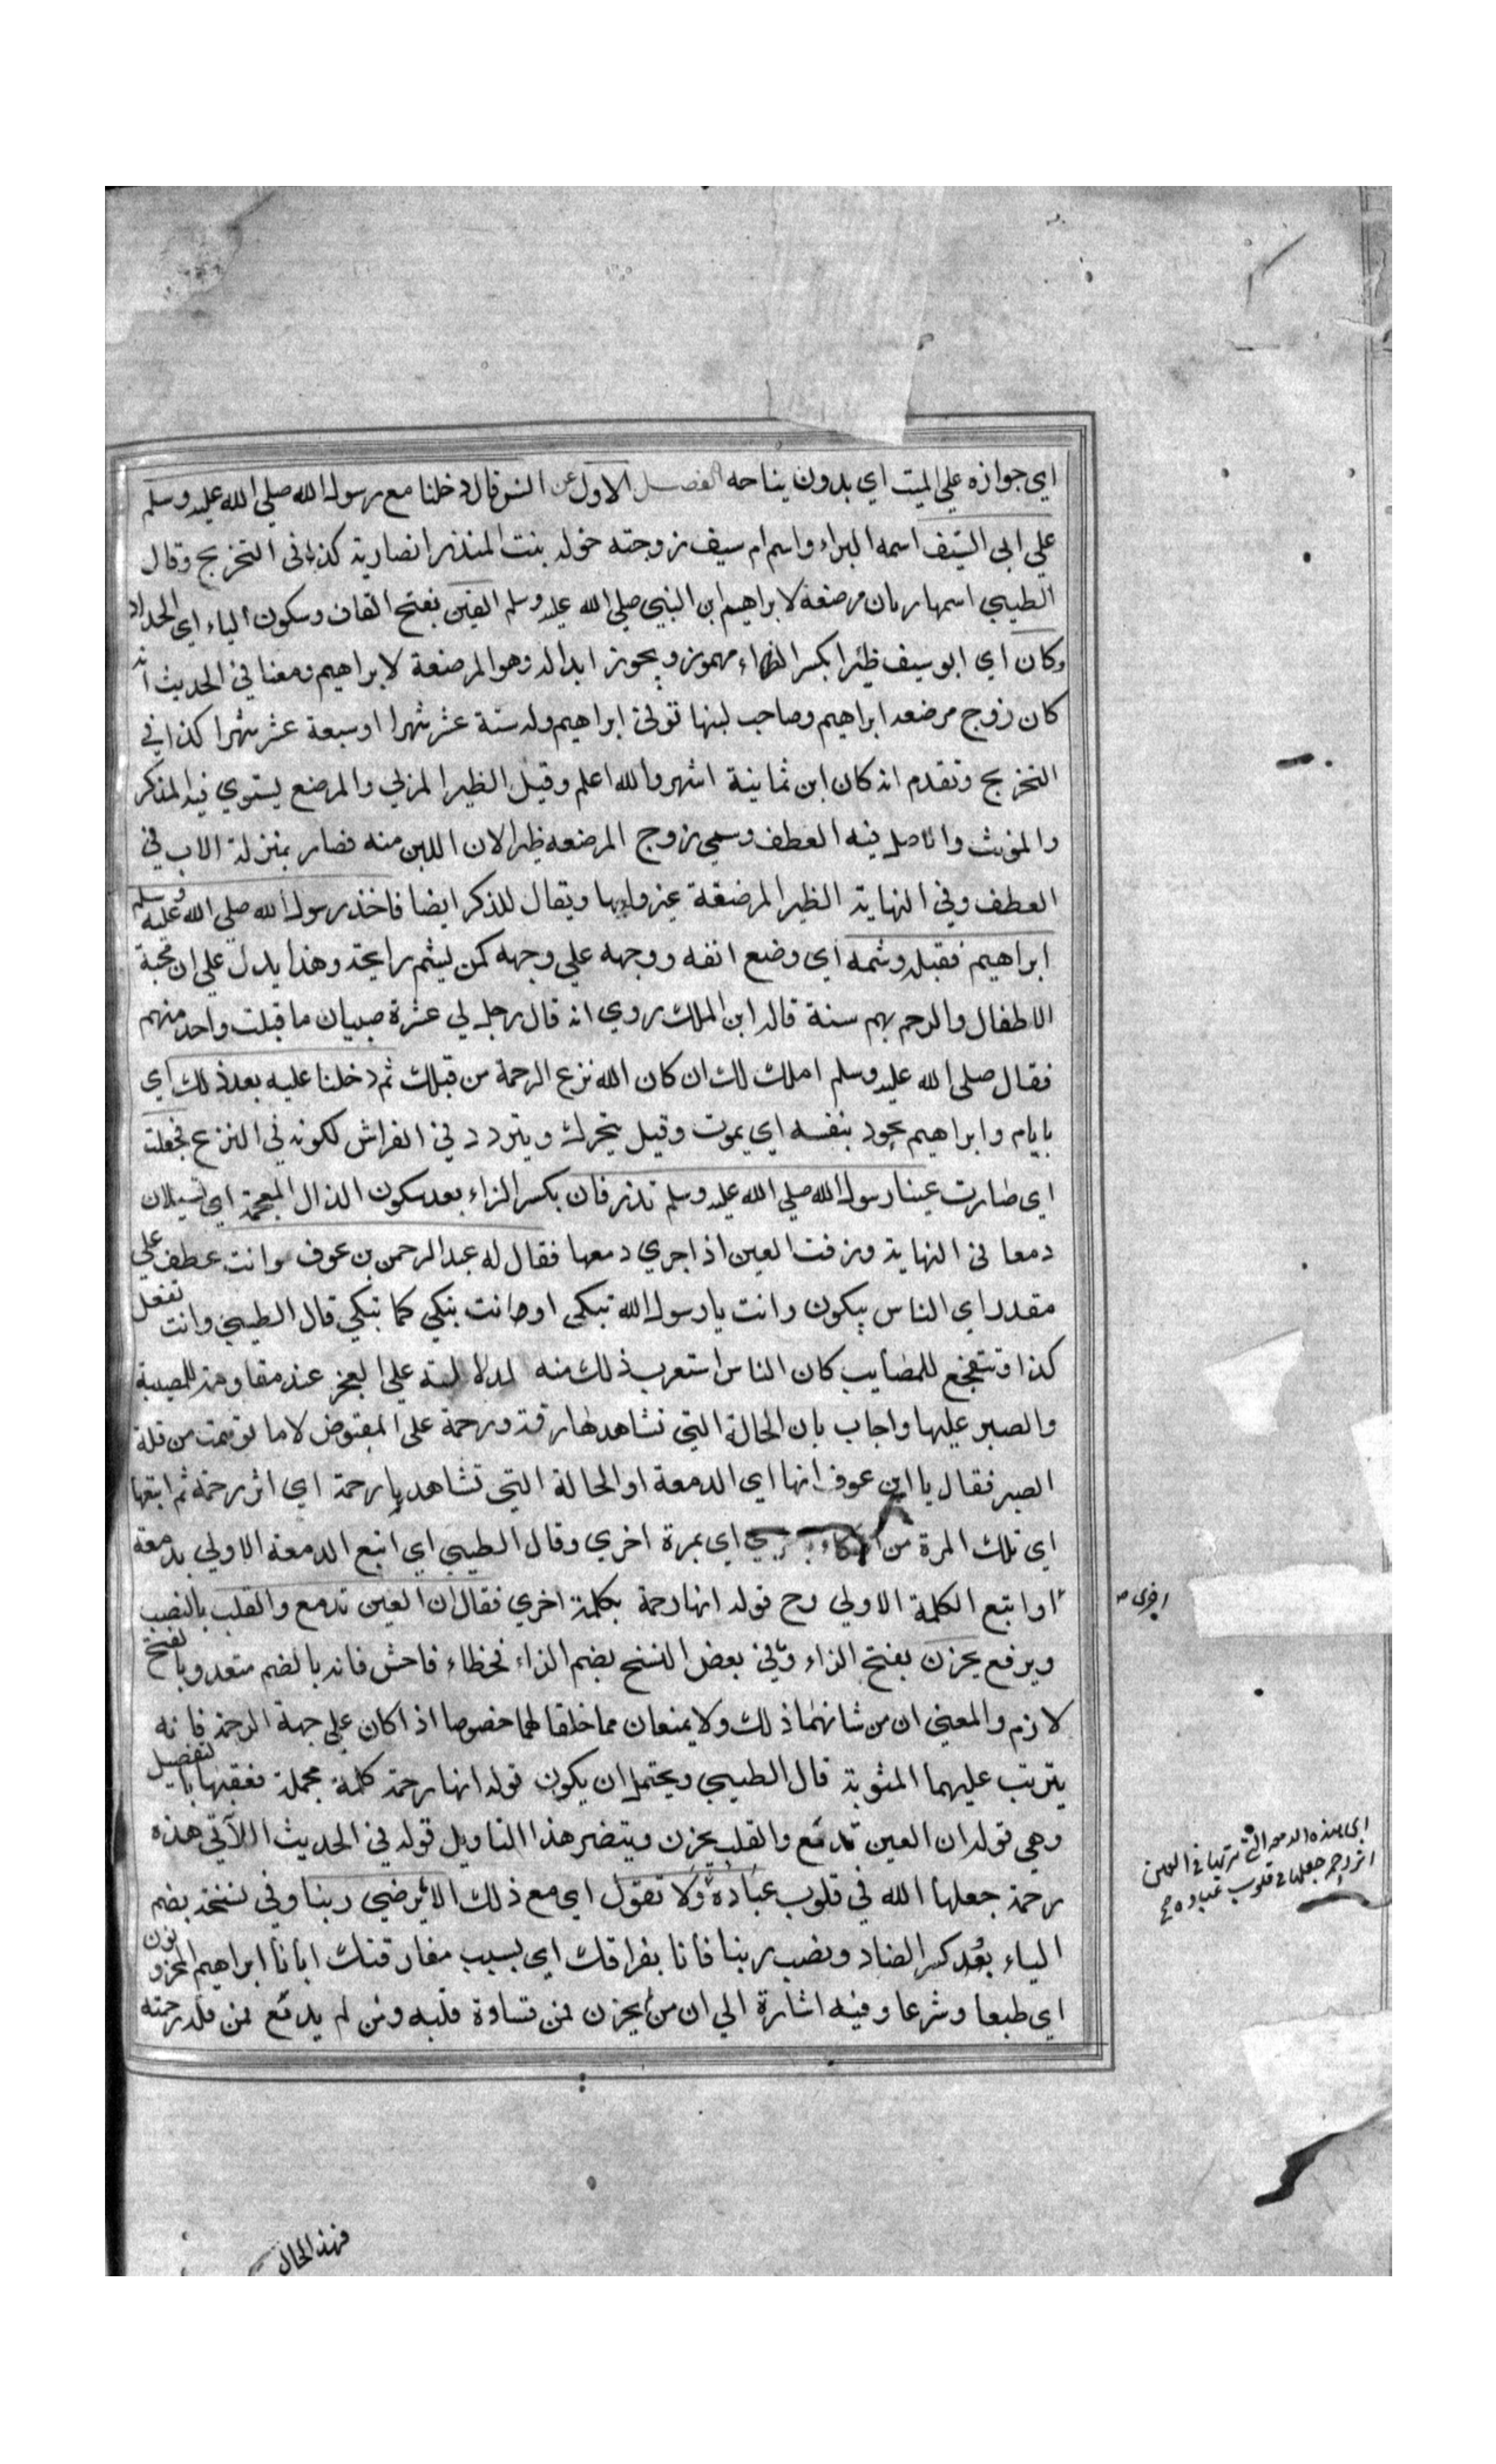 اي جوازه علي الميت اي بدون نياحه الفصل الاول عن انس قال دخلنا مع رسول الله صلي الله عليه وسلم
علي ابي السيف اسمه البراء واسم ام سيف زوجته خوله بنت المنذر انصارية كذا في التخريج وقال
الطيبي اسمها ريان مرضعة لابراهيم ابن النبي صلي الله عليه وسلم القين بفتح القاف وسكون الياء اي الحداد
وكان اي ابو سيف ظئرا بكسر الظاء مهموز ويجوز ابداله وهو المرضعة لابراهيم ومعنا في الحديث انه
كان زوج مرضعه ابراهيم وصاحب لبنها توفي ابراهيم وله ستة عشر شهرا او سبعة عشر شهرا كذا في
التخريج وتقدم انه كان ابن ثمانية اشهر والله اعلم وقيل الظير المربي والمرضع يستوي فيه المذكر
والمونث والاصل فيه العطف وسمي زوج المرضعه ظيرا لان اللبن منه فصار بمنزلة الاب في
العطف وفي النهاية الظير المرضعة غير ولدها ويقال للذكر ايضا فاخذ رسول الله صلي الله عليه وسلم
ابراهيم فقبله وشمه اي وضع انفه ووجهه علي وجهه كمن يشم رايحة وهذا يدل علي ان محبة
الاطفال والرحم بهم سنة قاله ابن الملك روي انه قال رجل لي عشرة صبيان ما قبلت واحد منهم
فقال صلي الله عليه وسلم املك لك ان كان الله نزع الرحمة من قبلك ثم دخلنا عليه بعد ذلك اي
بايام وابراهيم يجود بنفسه اي يموت وقيل يتحرك ويتردد في الفراش لكونه في النزع فجعلت
اي صارت عينا رسول الله صلي الله عليه وسلم تذرفان بكسر الراء بعد سكون الذال المعجمة اي تسيلان
دمعا في النهاية ذرفت العين اذا جري دمعها فقال له عبد الرحمن بن عوف وانت عطف علي
مقدر اي الناس يبكون وانت يا رسول الله تبكي او وانت تبكي كما نبكي قال الطيبي وانت تفعل
كذا وتتفجع للمصايب كان الناس استغرب ذلك منه لدلالته علي العجز عند مقاومة المصيبة
والصبر عليها واجاب بان الحالة التي تشاهدها رقة ورحمة علي المقبوض لا ما توهمت من قلة
الصبر فقال يا ابن عوف انها اي الدمعة او الحالة التي تشاهد يا رحمة اي اثر رحمة ثم اتبعها
اي تلك المرة من البكاء باخري اي بمرة اخري وقال الطيبي اي اتبع الدمعة الاولي بدمعة
او اتبع الكلمة الاولي وح قوله انها رحمة بكلمة اخري فقال ان العين تدمع والقلب بالنصب
اخري
ويرفع يحزن بفتح الزاء وفي بعض النسخ بضم الزاء فخطاء فاحش فانه بالضم متعد وبالفتح
لازم والمعني ان من شانهما ذلك ولا يمنعان مما خلقا لهما خصوصا اذا كان علي جهة الرحمة فانه
يترتب عليهما المثوبة قال الطيبي ويحتمل ان يكون قوله انها رحمة كلمة مجملة فعقبها بالتفصيل
وهي قوله ان العين تدمع والقلب يحزن وينصر هذا التاويل قوله في الحديث الاتي هذه
رحمة جعلها الله في قلوب عباده ولا نقول اي مع ذلك الا يرضي ربنا وفي نسخة بضم
اي هذه الدمعة التي تريها في العين
اثر رحمة جعلها في قلوب عباده
الياء بعد كسر الضاد ونصب ربنا فانا بفراقك اي بسبب مفارقتك ايانا ابراهيم لمحزونون
اي طبعا وشرعا وفيه اشارة الي ان من لم يحزن لمن قساوة قلبه ومن لم يدمع لمن قلة رحمته
فهذا الحال